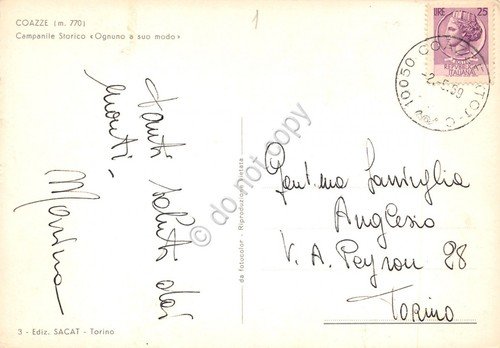 COAZZE (m. 770)
Campanile Storico «Ognuno a suo modo»
1
LIRE 25
ITALIANA
10050 COAZZE (TO)
Tanti saluti dai
monti -
Marina
do not copy
da fotocolor - Riproduzione vietata
Gent.ma Famiglia
Anglesio
V. A. Peyron 28
Torino
3 - Ediz. SACAT - Torino